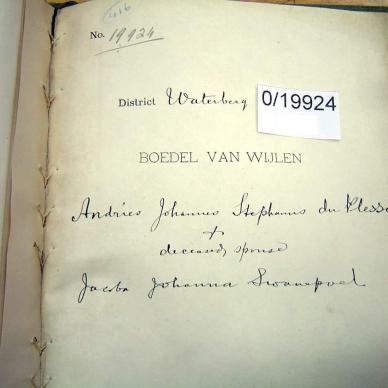 416
No. 19924
District Waterberg
0/19924
BOEDEL VAN WIJLEN
Andries Johannes Stephanus du Plesse
+
deceased spouse
Jacoba Johanna Swanepoel